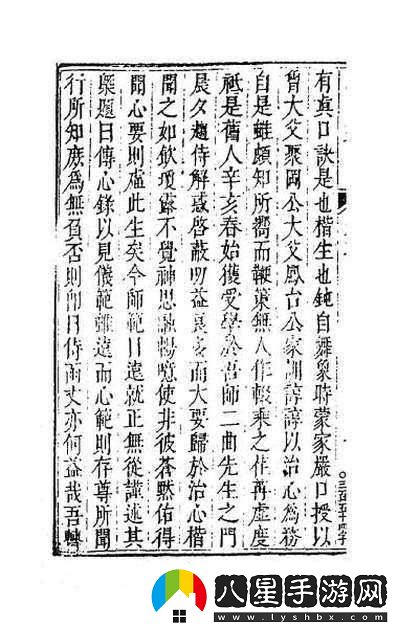 有真口訣是也楷生也鈍自舞象時蒙家嚴口授以
曾大父聚岡公大父鳳台公家訓諄諄以治心為務
自是雖頗知所嚮而鞭策無人作輟乘之荏苒虛度
祗是舊人辛亥春始獲受學於吾師二曲先生之門
晨夕趨侍解惑啓蔽叨益良多而大要歸於治心楷
聞之如飲瓊露不覺神思融暢噫使非彼蒼默佑得
聞心要則虛此生矣今師範日遠就正無從謹述其
槩題曰傳心錄以見儀範雖遠而心範則存尊所聞
行所知庶為無負否則卽日侍函丈亦何益哉吾轉
八星手游网
www.lyshbx.com